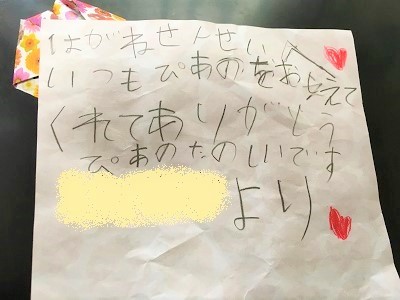 はがねせんせいへ
いつもぴあのをおしえて
くれてありがとう
ぴあのたのしいです
より